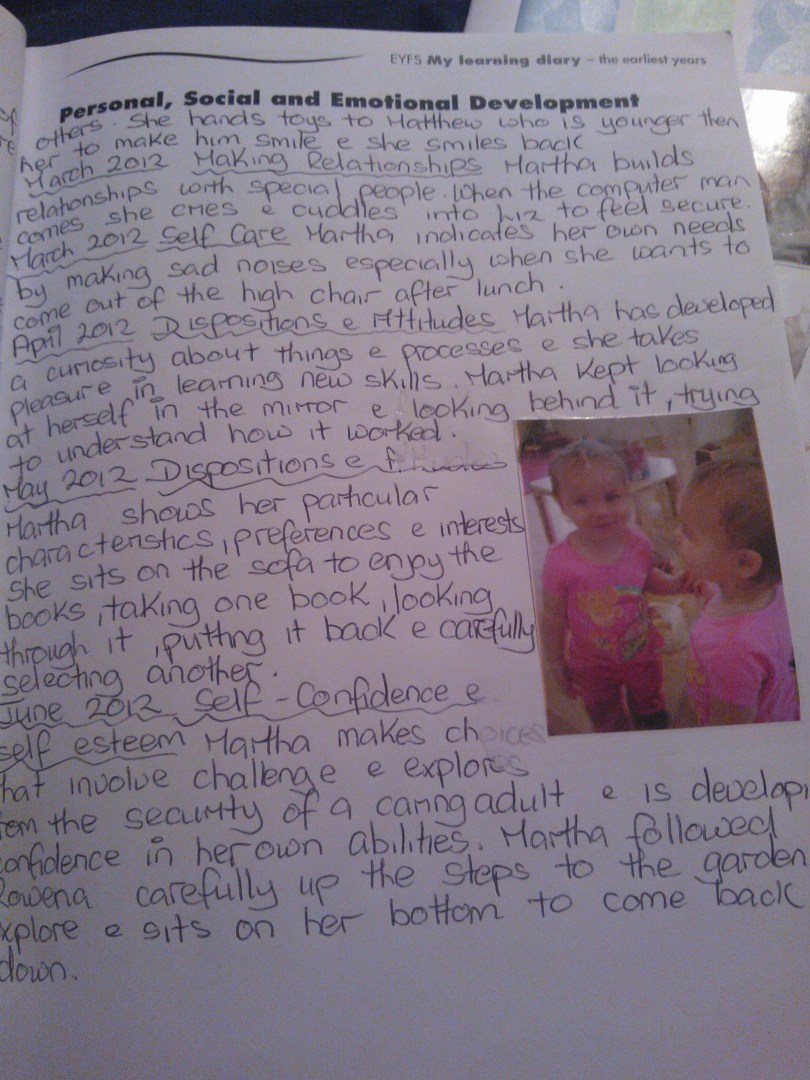 EYFS My learning diary – the earliest years
Personal, Social and Emotional Development
others. She hands toys to Matthew who is younger then
her to make him smile e she smiles back
March 2012 Making Relationships Martha builds
relationships with special people. When the computer man
comes she cries e cuddles into Liz to feel secure.
March 2012 Self Care Martha indicates her own needs
by making sad noises especially when she wants to
come out of the high chair after lunch.
April 2012 Dispositions e Attitudes Martha has developed
a curiosity about things e processes e she takes
pleasure in learning new skills. Martha kept looking
at herself in the mirror e looking behind it, trying
to understand how it worked.
May 2012 Dispositions e
Martha shows her particular
characteristics, preferences e interests
she sits on the sofa to enjoy the
books, taking one book, looking
through it, putting it back e carefully
selecting another.
June 2012 Self-Confidence e
self esteem Martha makes choices
hat involve challenge e explores
rom the security of a caring adult e is developi
onfidence in her own abilities. Martha followed
Rowena carefully up the steps to the garden
xplore e sits on her bottom to come back
down.